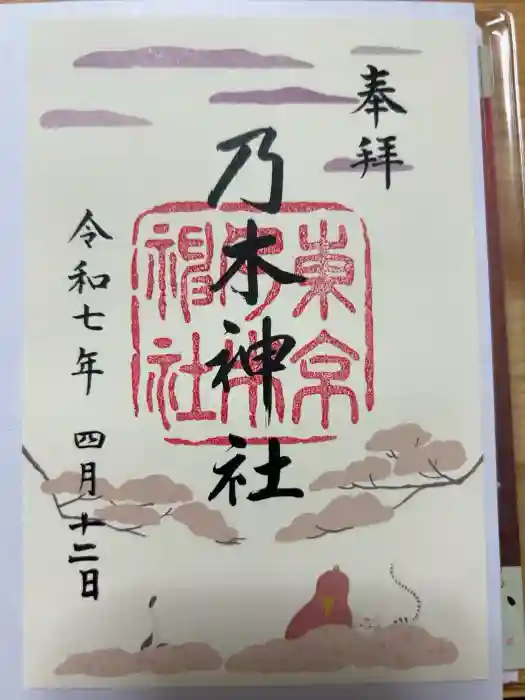 奉拝
乃木神社
東京乃木神社
令和七年 四月十二日